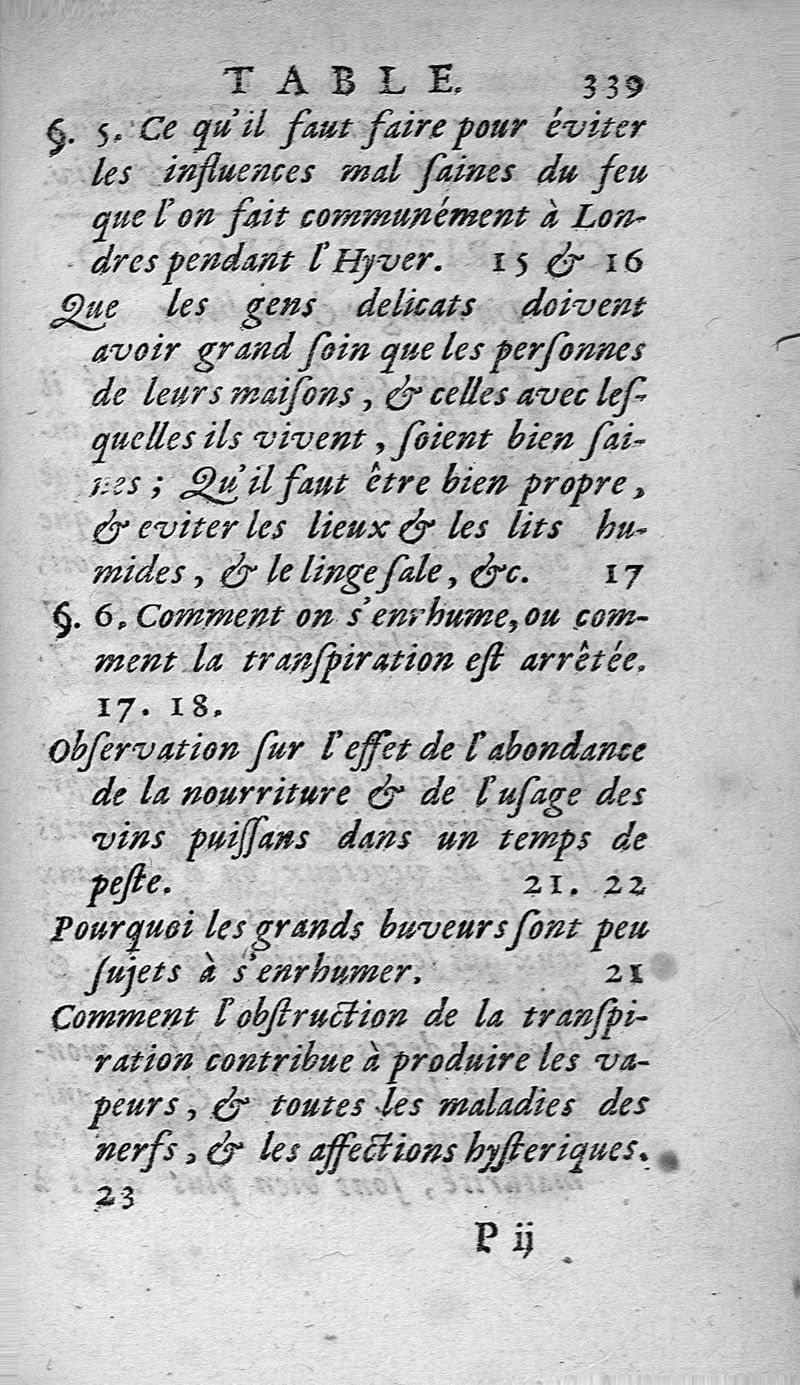 TABLE. 339
§. 5. Ce qu'il faut faire pour éviter
les influences mal ſaines du feu
que l'on fait communément à Lon-
dres pendant l'Hyver. 15 & 16
Que les gens delicats doivent
avoir grand ſoin que les perſonnes
de leurs maiſons, & celles avec leſ-
quelles ils vivent, ſoient bien ſai-
nes ; Qu'il faut être bien propre,
& eviter les lieux & les lits hu-
mides, & le linge ſale, &c. 17
§. 6. Comment on s'enrhume, ou com-
ment la tranſpiration eſt arrêtée.
17. 18.
Obſervation ſur l'effet de l'abondance
de la nourriture & de l'uſage des
vins puiſſans dans un temps de
peſte. 21. 22
Pourquoi les grands buveurs ſont peu
ſujets à s'enrhumer. 21
Comment l'obſtruction de la tranſpi-
ration contribue à produire les va-
peurs, & toutes les maladies des
nerfs, & les affections hyſteriques.
23
P ij